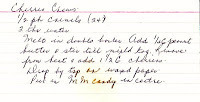 Cherrie Chews
1/2 pk Caramels (24)
2 tbs water
Melt in double boiler. Add 1/2 c peanut
butter & stir till
from heat & add 1 3/4 c cheerios.
Drop by tsp on waxed paper
Put in M M candy in centre